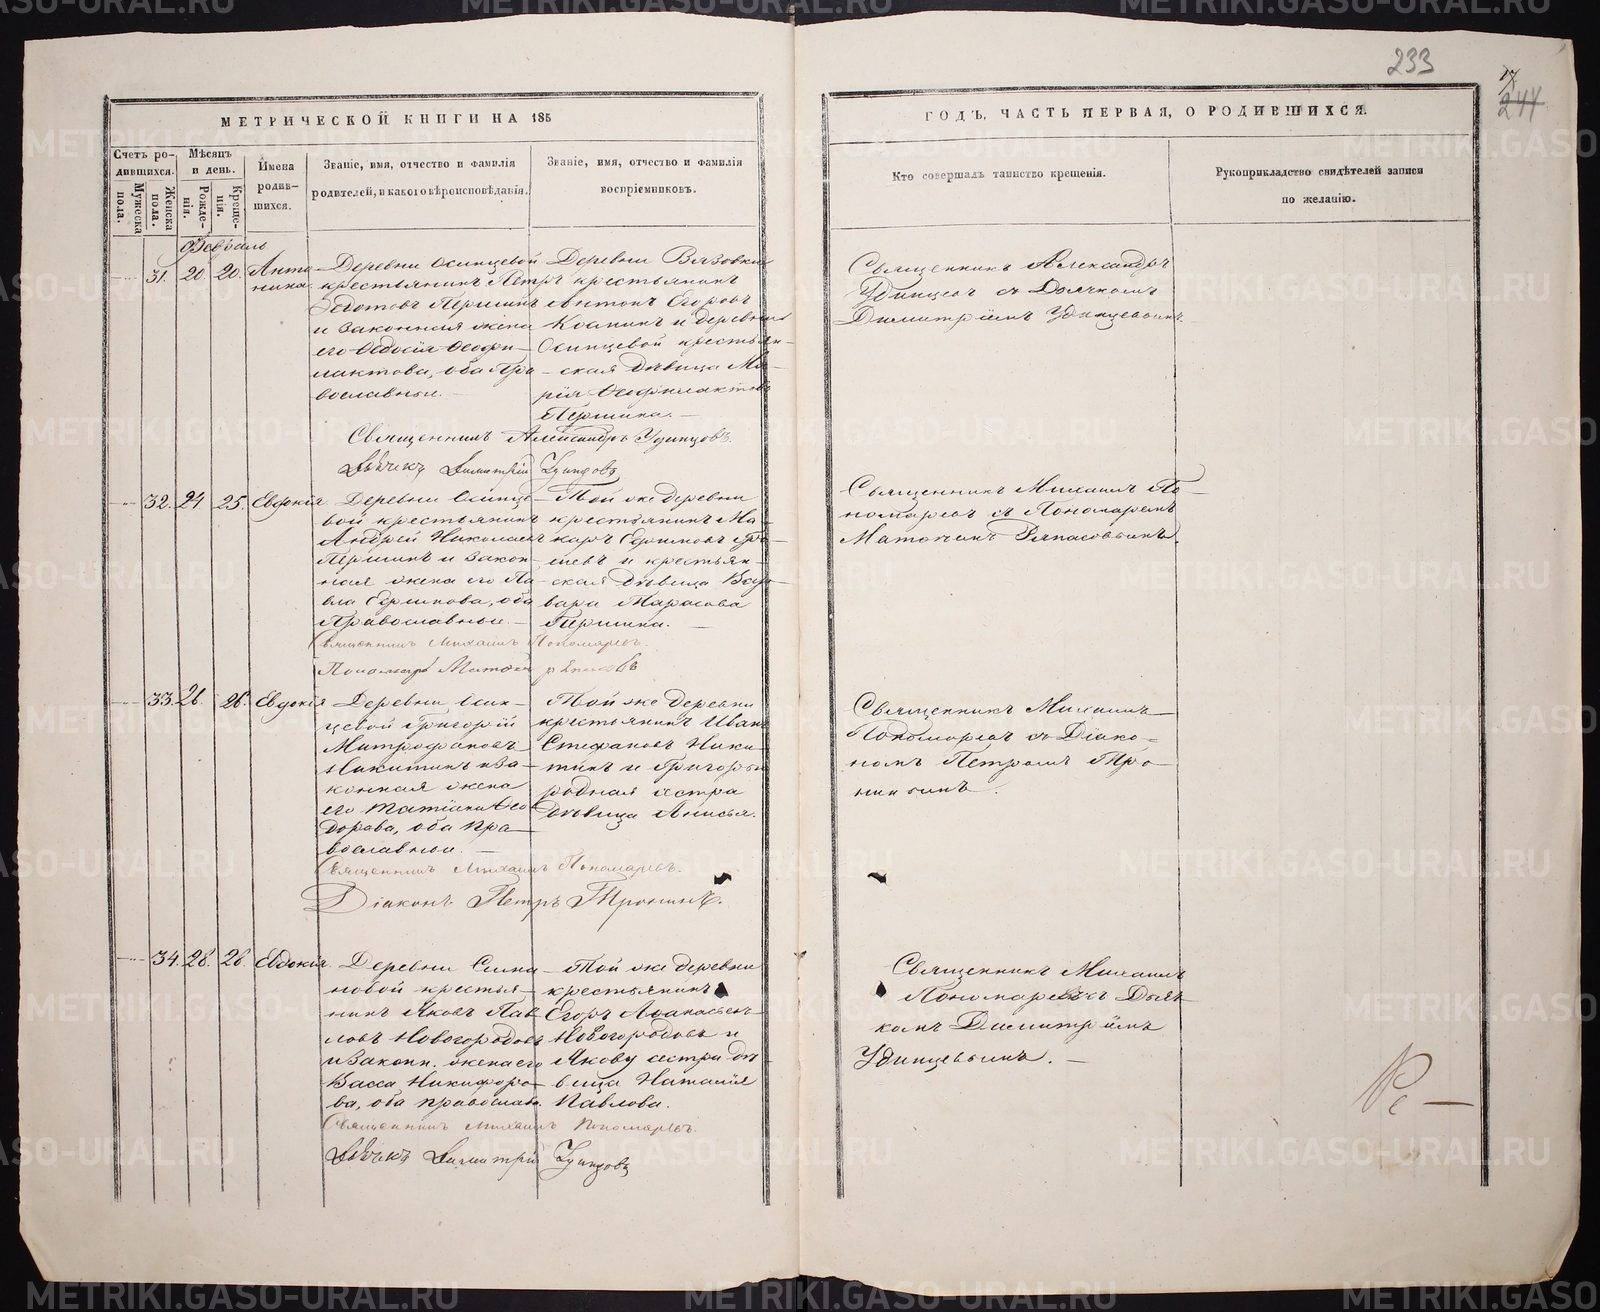 233
17
244
МЕТРИЧЕСКОЙ КНИГИ НА 185
ГОДЪ, ЧАСТЬ ПЕРВАЯ, О РОДИВШИХСЯ.
Счетъ ро-
дившихся.
Мужеска
пола.
Женска
пола.
Мѣсяцъ
и день.
Рожде-
нія.
Креще-
нія.
Имена
родив-
шихся.
Званіе, имя, отчество и фамилія
родителей, и какого вѣроисповѣданія.
Званіе, имя, отчество и фамилія
воспріемниковъ.
Кто совершалъ таинство крещенія.
Рукоприкладство свидѣтелей записи
по желанію.
Февраль
31. 20. 20. Анто-
нина.
Деревни Осинцевой
крестьянинъ Петръ
Ѳедотовъ Першинъ
и законная жена
его Ѳедосія Ѳеофи-
лактова, оба Пра-
вославные.
Деревни Вязовки
крестьянинъ
Антонъ Егоровъ
и деревни
Осинцевой крестьян-
ская дѣвица Ма-
рія Ѳеофилактова
Першина.
Священникъ Александръ
Удинцовъ съ Дьячкомъ
Димитріемъ Удинцовымъ.
Священникъ Александръ Удинцовъ.
Дьячекъ Димитрій Удинцовъ
32. 24. 25. Евдокія.
Деревни Осинце-
вой крестьянинъ
Андрей Николаевъ
Першинъ и закон-
ная жена его Па-
вла Ефимова, оба
Православные.
Той же деревни
крестьянинъ Ма-
каръ Ефимовъ
и крестьян-
ская дѣвица Вар-
вара Тарасова
Першина.
Священникъ Михаилъ По-
номаревъ съ Пономаремъ
Священникъ Михаилъ Пономаревъ.
Пономарь
33. 26. 26. Евдокія
Деревни Осин-
цевой Григорій
Митрофановъ
Никитинъ и за-
конная жена
его Татіана Ѳео-
дорова, оба Пра-
вославные.
Той же деревни
крестьянинъ Иванъ
Стефановъ Ники-
тинъ и Григорья
родная сестра
дѣвица Анисья.
Священникъ Михаилъ
Пономаревъ съ Діако-
номъ Петромъ Тро-
нинымъ.
Священникъ Михаилъ Пономаревъ.
Діаконъ Петръ Тронинъ.
34. 26. 26. Евдокія.
Деревни
крестья-
нинъ Яковъ Пав-
ловъ Новогородовъ
и законн. жена его
Васса Никифоро-
ва, оба православн.
Той же деревни
крестьянинъ
Егоръ Аѳанасьевъ
Новогородовъ и
Якову сестра дѣ-
вица Наталія
Павлова.
Священникъ Михаилъ
Пономаревъ съ Дьяч-
комъ Димитріемъ
Удинцовымъ.
Священникъ Михаилъ Пономаревъ.
Дьячекъ Димитрій Удинцовъ